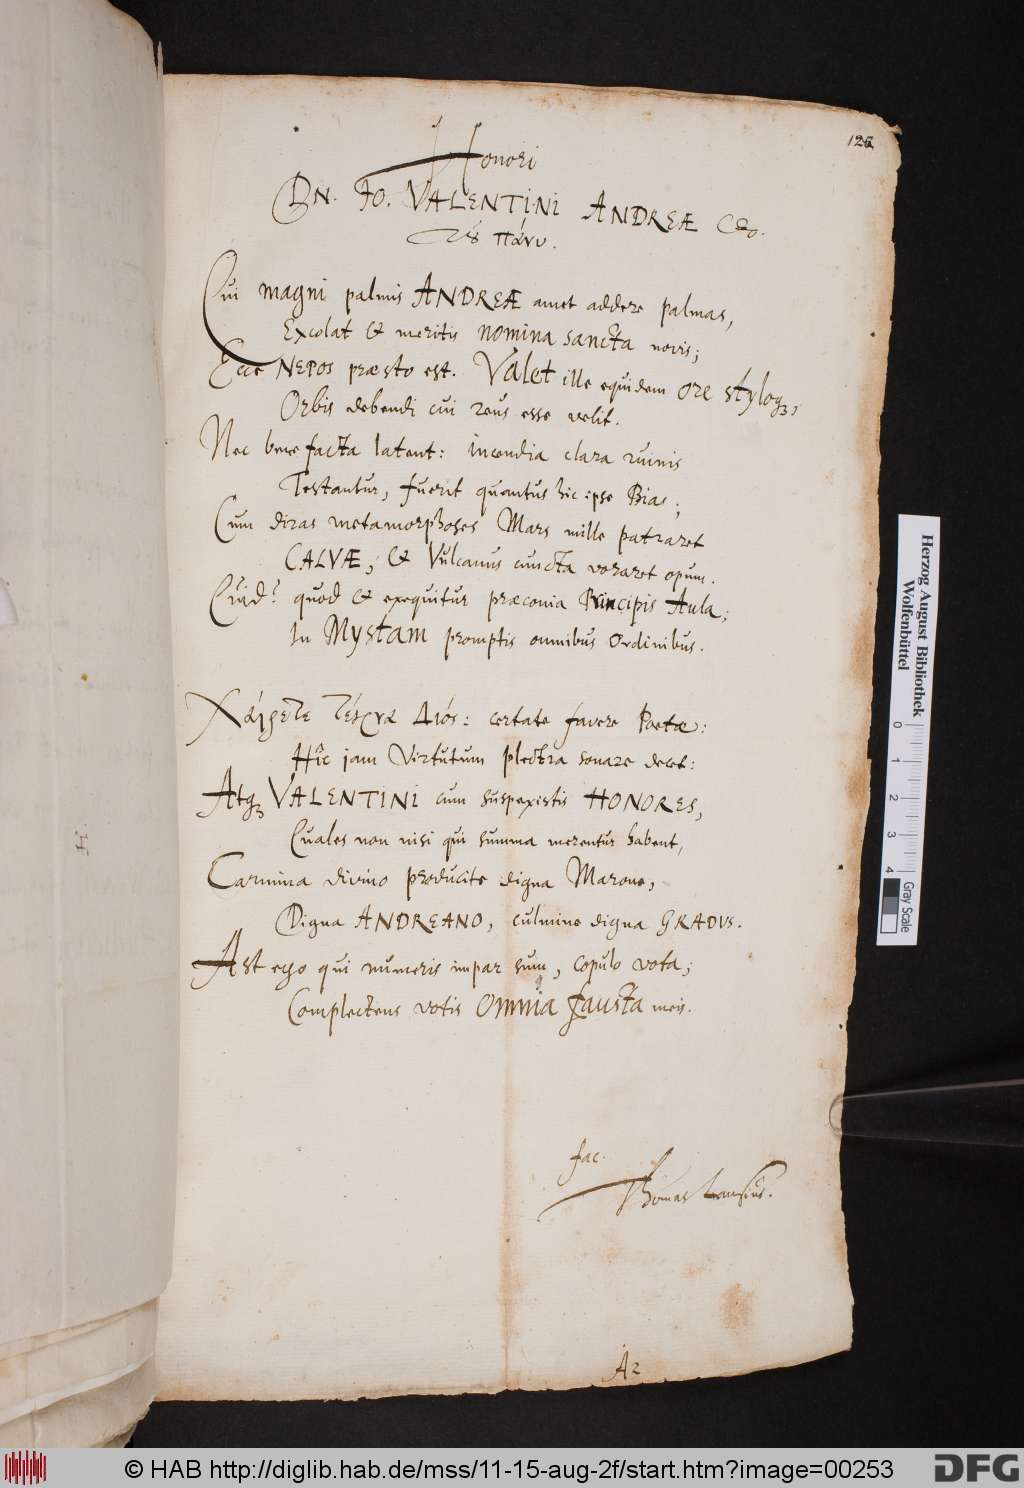 126
Honori
DN. JO. VALENTINI ANDREÆ
τȣ πάνυ.
Cui magni palmis ANDREÆ amet addere palmas,
Excolat & meritis nomina sancta novis;
Ecce NEPOS præsto est. Valet ille equidem ore styloq3,
Orbis debendi cui reus esse velit.
Nec benefacta latent: incendia clara ruinis
Testantur, fuerit quantus hic ipse Bias;
Cum diras metamorphoses Mars mille patraret
CALVÆ, & Vulcanus cuncta voraret opum.
Quid? quod & exequitur præconia Principis Aula;
In Mystam promptis omnibus Ordinibus.
Χαίρετε τέκνα Διός: certate favere Poetæ:
Hîc jam Virtutum plectra sonare decet:
Atq3 VALENTINI cum suspexistis HONORES,
Quales non nisi qui summa merentur habent,
Carmina divino producite digna Marone,
Digna ANDREANO, culmine digna GRADUS.
Ast ego qui numeris impar sum, copulo vota;
Complectens votis Omnia fausta meis.
fac.
Thomas Lansius.
A2
Herzog August Bibliothek
Wolfenbüttel
0 1 2 3 4
Gray Scale
© HAB http://diglib.hab.de/mss/11-15-aug-2f/start.htm?image=00253
DFG